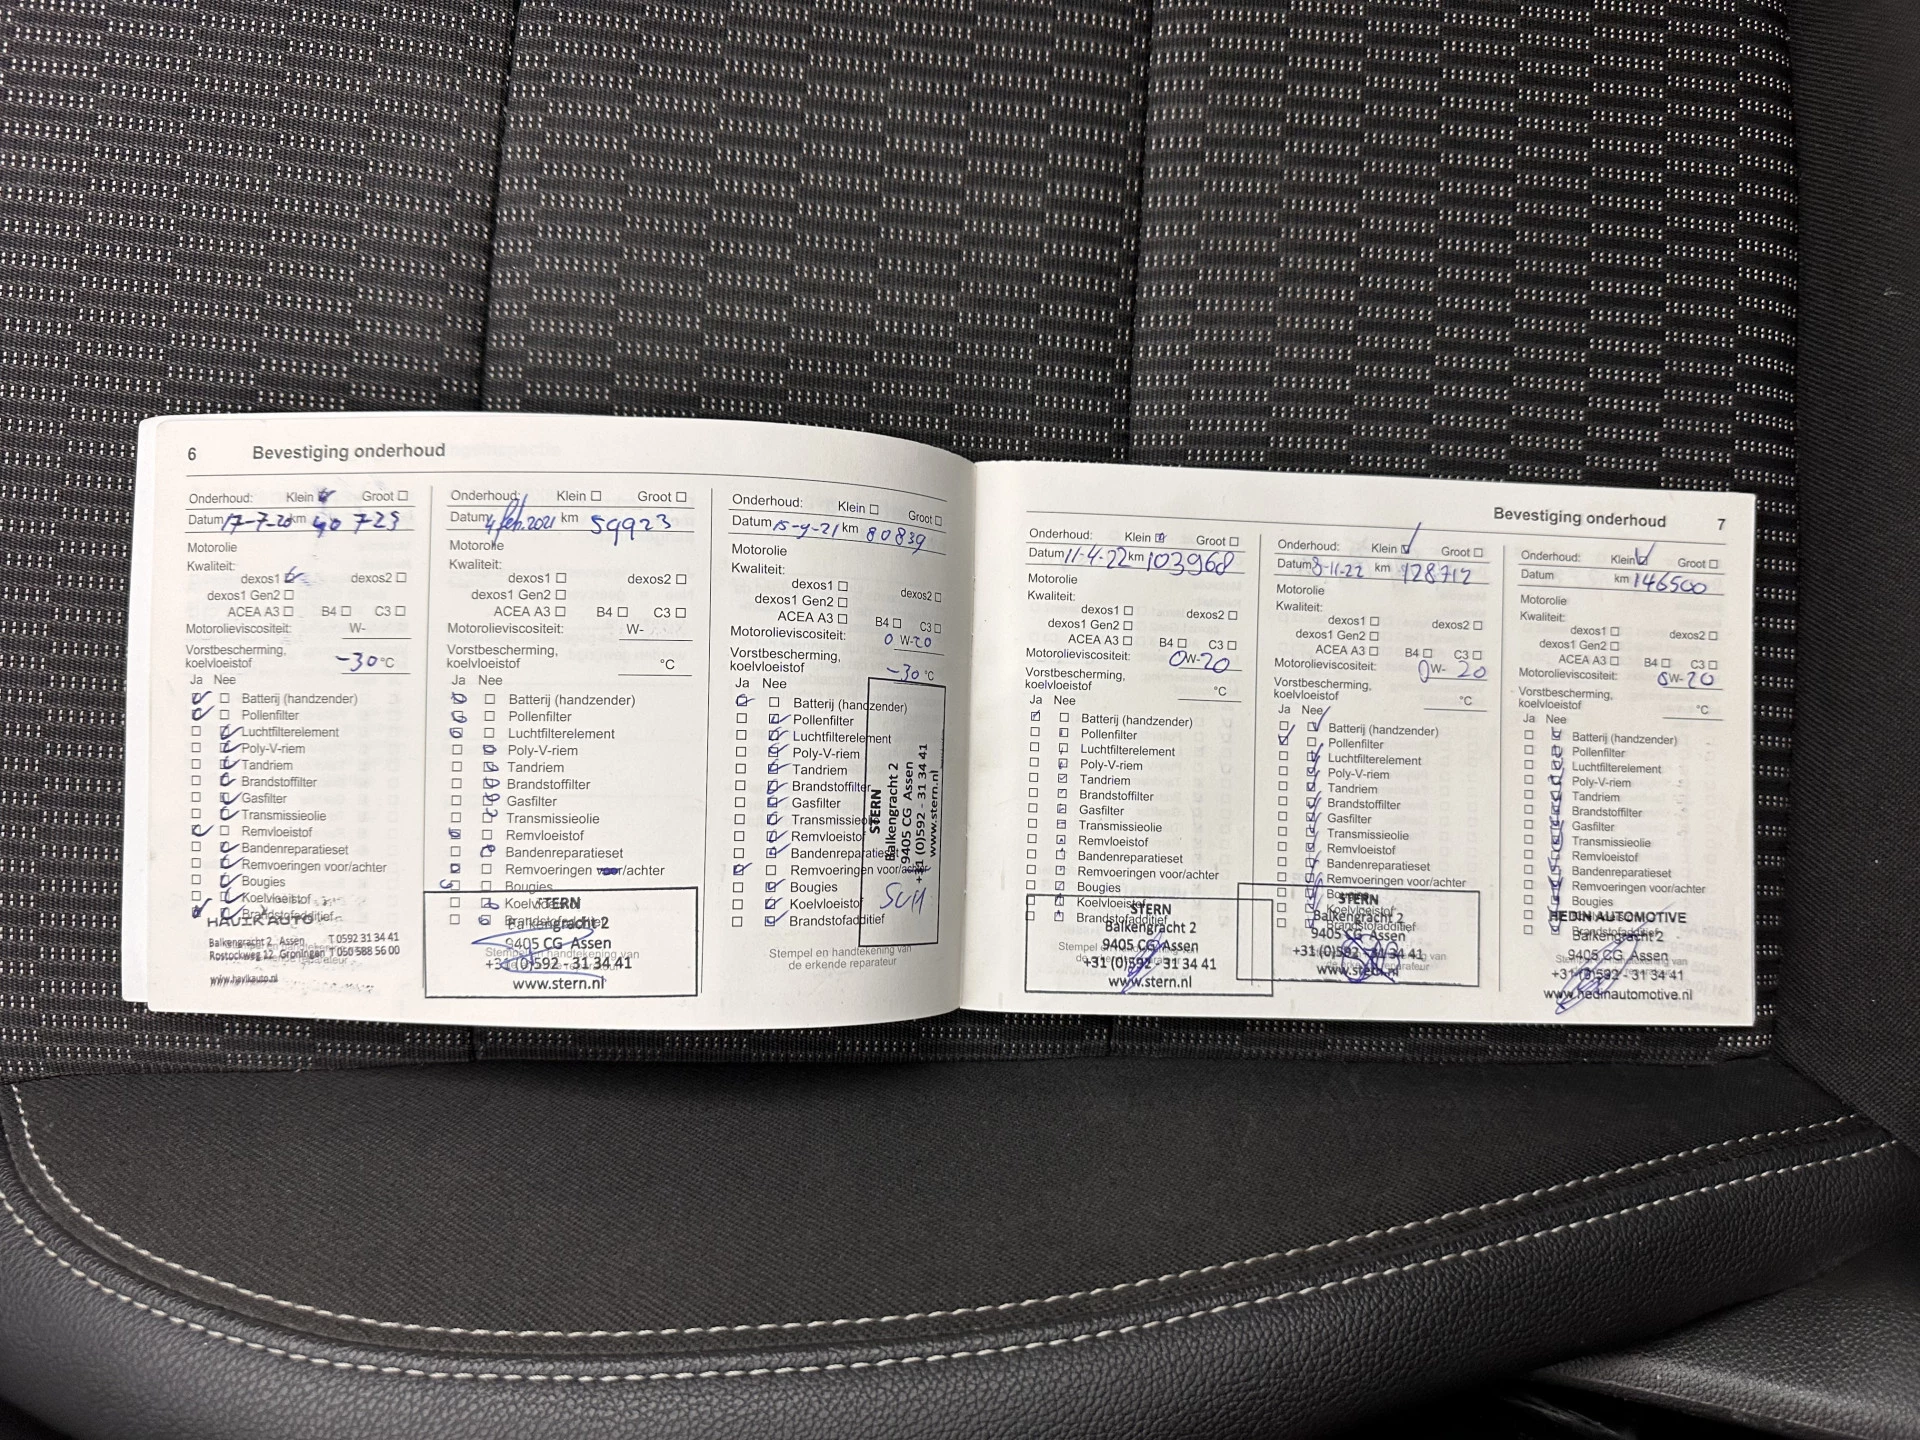 6 Bevestiging onderhoud
Onderhoud: Klein Groot
Datum 17-7-20 km 40 729
Motorolie
Kwaliteit:
dexos1 dexos2
dexos1 Gen2
ACEA A3 B4 C3
Motorolieviscositeit: W-
Vorstbescherming,
koelvloeistof -30 °C
Ja Nee
Batterij (handzender)
Pollenfilter
Luchtfilterelement
Poly-V-riem
Tandriem
Brandstoffilter
Gasfilter
Transmissieolie
Remvloeistof
Bandenreparatieset
Remvoeringen voor/achter
Bougies
Koelvloeistof
Brandstofadditief
HAVIK AUTO
Balkengracht 2 Assen T 0592 31 34 41
Rostockweg 12 Groningen T 050 588 56 00
www.havikauto.nl
Onderhoud: Klein Groot
Datum 4 feb. 2021 km 59923
Motorolie
Kwaliteit:
dexos1 dexos2
dexos1 Gen2
ACEA A3 B4 C3
Motorolieviscositeit: W-
Vorstbescherming,
koelvloeistof °C
Ja Nee
Batterij (handzender)
Pollenfilter
Luchtfilterelement
Poly-V-riem
Tandriem
Brandstoffilter
Gasfilter
Transmissieolie
Remvloeistof
Bandenreparatieset
Remvoeringen voor/achter
Bougies
Koelvloeistof
Brandstofadditief
STERN
Balkengracht 2
9405 CG Assen
+31 (0)592 - 31 34 41
www.stern.nl
Onderhoud: Klein Groot
Datum 15-9-21 km 80839
Motorolie
Kwaliteit:
dexos1 dexos2
dexos1 Gen2
ACEA A3 B4 C3
Motorolieviscositeit: 0 W-20
Vorstbescherming,
koelvloeistof -30 °C
Ja Nee
Batterij (handzender)
Pollenfilter
Luchtfilterelement
Poly-V-riem
Tandriem
Brandstoffilter
Gasfilter
Transmissieolie
Remvloeistof
Bandenreparatieset
Remvoeringen voor/achter
Bougies
Koelvloeistof
Brandstofadditief
Stempel en handtekening van
de erkende reparateur
STERN
Balkengracht 2
9405 CG Assen
+31 (0)592 - 31 34 41
www.stern.nl
Bevestiging onderhoud 7
Onderhoud: Klein Groot
Datum 11-4-22 km 103968
Motorolie
Kwaliteit:
dexos1 dexos2
dexos1 Gen2
ACEA A3 B4 C3
Motorolieviscositeit: 0W-20
Vorstbescherming,
koelvloeistof °C
Ja Nee
Batterij (handzender)
Pollenfilter
Luchtfilterelement
Poly-V-riem
Tandriem
Brandstoffilter
Gasfilter
Transmissieolie
Remvloeistof
Bandenreparatieset
Remvoeringen voor/achter
Bougies
Koelvloeistof
Brandstofadditief
STERN
Balkengracht 2
9405 CG Assen
+31 (0)592 - 31 34 41
www.stern.nl
Onderhoud: Klein Groot
Datum 8-11-22 km 128712
Motorolie
Kwaliteit:
dexos1 dexos2
dexos1 Gen2
ACEA A3 B4 C3
Motorolieviscositeit: 0W-20
Vorstbescherming,
koelvloeistof °C
Ja Nee
Batterij (handzender)
Pollenfilter
Luchtfilterelement
Poly-V-riem
Tandriem
Brandstoffilter
Gasfilter
Transmissieolie
Remvloeistof
Bandenreparatieset
Remvoeringen voor/achter
Bougies
Koelvloeistof
Brandstofadditief
STERN
Balkengracht 2
9405 CG Assen
+31 (0)592 - 31 34 41
www.stern.nl
Onderhoud: Klein Groot
Datum km 146500
Motorolie
Kwaliteit:
dexos1 dexos2
dexos1 Gen2
ACEA A3 B4 C3
Motorolieviscositeit: 0W-20
Vorstbescherming,
koelvloeistof °C
Ja Nee
Batterij (handzender)
Pollenfilter
Luchtfilterelement
Poly-V-riem
Tandriem
Brandstoffilter
Gasfilter
Transmissieolie
Remvloeistof
Bandenreparatieset
Remvoeringen voor/achter
Bougies
Brandstofadditief
HEDIN AUTOMOTIVE
Balkengracht 2
9405 CG Assen
+31 (0)592 - 31 34 41
www.hedinautomotive.nl